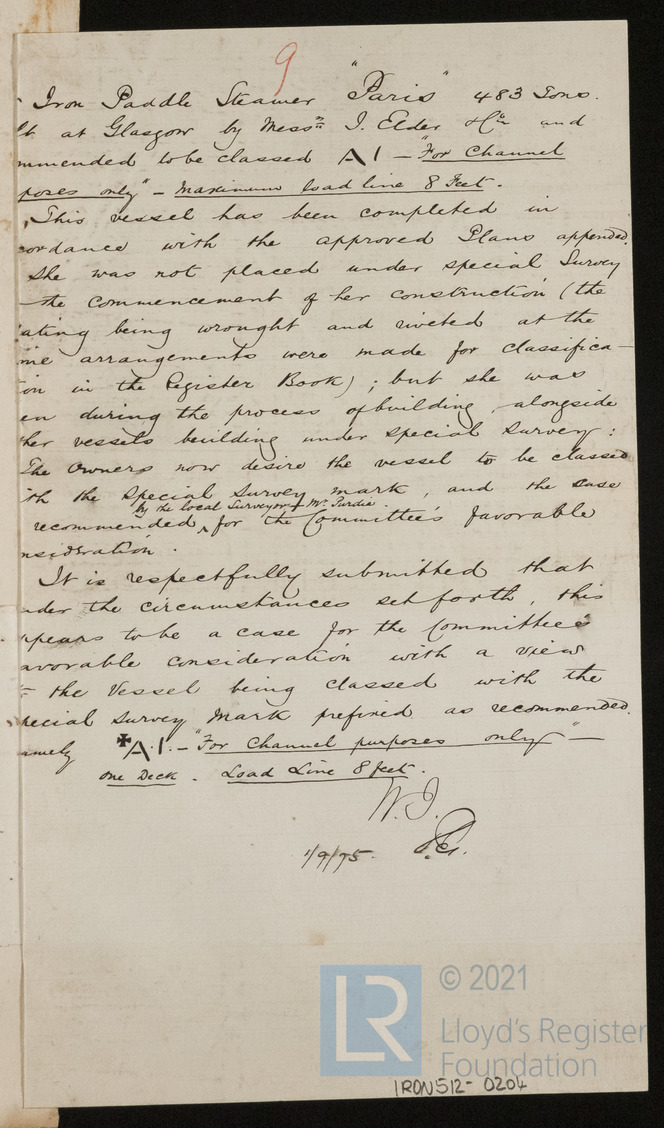 9
Iron Paddle Steamer "Paris" 483 Tons.
lt at Glasgow by Messrs J. Elder & Co and
mmended to be classed A1 — "For Channel
poses only" — Maximum load line 8 Feet.
This vessel has been completed in
cordance with the approved Plans appended.
She was not placed under special Survey
the commencement of her construction (the
ating being wrought and riveted at the
me arrangements were made for classifica-
on in the Register Book); but she was
en during the process of building, alongside
her vessels building under special survey:
The Owners now desire the vessel to be classed
ith the special Survey mark, and the case
by the local Surveyor & Mr.
recommended, for the Committee's favorable
nsideration.
It is respectfully submitted that
nder the circumstances set forth, this
ppears to be a case for the Committee's
avorable consideration with a view
to the Vessel being classed with the
pecial Survey Mark prefixed as recommended.
amely ✠A.1. — "For Channel purposes only" —
One Deck. Load Line 8 feet.
W.J.
1/9/75.
LR
© 2021
Lloyd's Register
Foundation
IRON512-0204